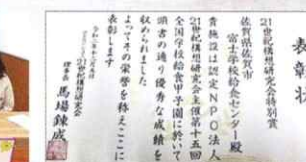 表彰状
21世紀構想研究会特別賞
佐賀県佐賀市
富士学校給食センター殿
貴施設は認定NPO法人
21世紀構想研究会主催第十五回
全国学校給食甲子園に於いて
頭書の通り優秀な成績を
収められました
よってその栄誉を称えここに
表彰します
21世紀構想研究会
理事長 馬場錬成